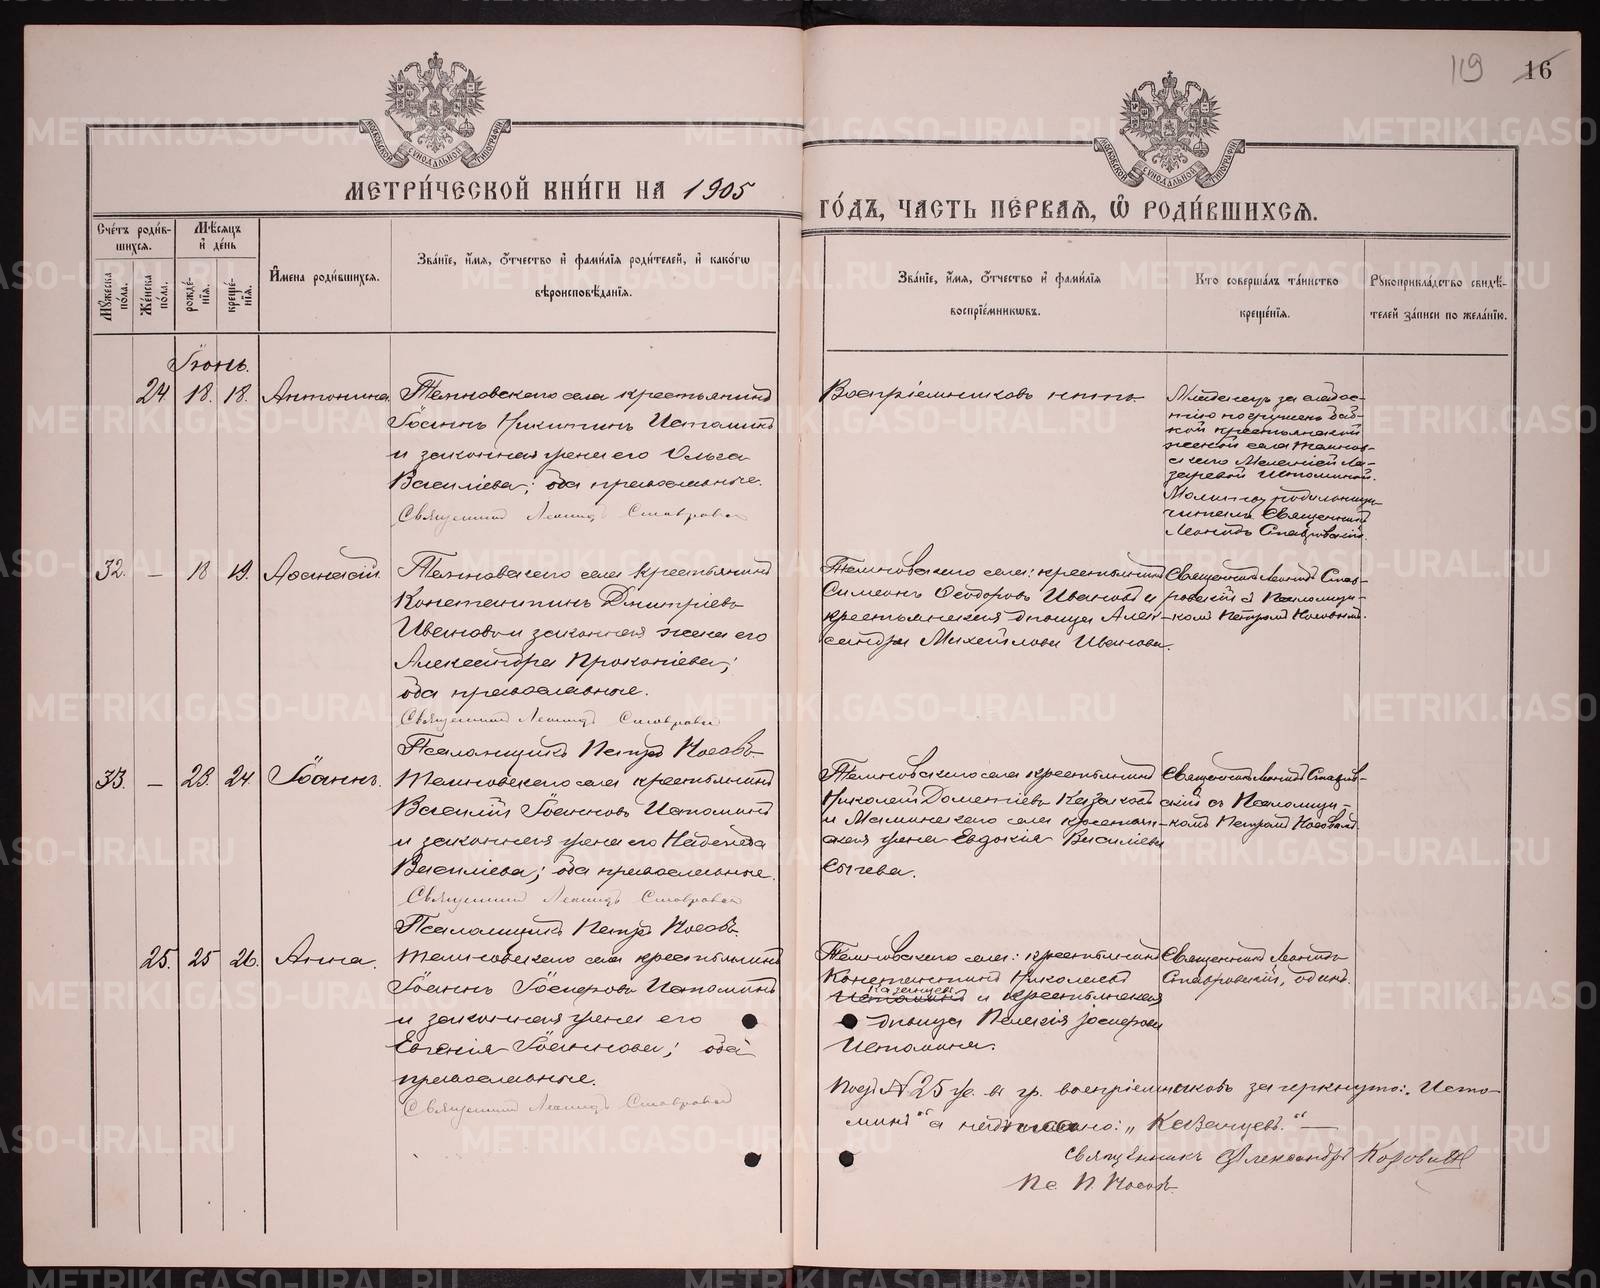 119 16
МОСКОВСКОЙ СѴНОДАЛЬНОЙ ТИПОГРАФІИ
МОСКОВСКОЙ СѴНОДАЛЬНОЙ ТИПОГРАФІИ
МЕТРИ́ЧЕСКОЙ КНИ́ГИ НА 1905
ГО́ДЪ, ЧАСТЬ ПЕ́РВАЯ, Ѡ РОДИ́ВШИХСЯ.
Сче́тъ роди́в-
шихся.
Мꙋ́жеска по́ла.
Же́нска по́ла.
Мѣ́сяцъ и҆ де́нь
рожде́-нїя.
креще́-нїя.
И҆мена роди́вшихся.
Зва́нїе, и҆́мя, ѻ҆́тчество и҆ фами́лїя роди́телей, и҆ како́гѡ
вѣроисповѣ́данїя.
Зва́нїе, и҆́мя, ѻ҆́тчество и҆ фами́лїя
воспрїе́мникѡвъ.
Кто соверша́лъ та́инство
креще́нїя.
Рꙋкоприкла́дство свидѣ́-
телей за́писи по жела́нїю.
Іюнь.
24 18. 18. Антонина.
Темновскаго села крестьянинъ
Іоаннъ Никитинъ Истоминъ
и законная жена его Ольга
Васильева; оба православные.
Священникъ Леонидъ Ставровскій
Воспріемниковъ нѣтъ.
Младенецъ за слабос-
тію погруженъ баб-
кой крестьянской
женой села Темнов-
скаго Ла-
заревой Истоминой.
Молитву родильницы
читалъ Священникъ
Леонидъ Ставровскій.
32. — 18 19. Аѳанасій.
Темновскаго села крестьянинъ
Константинъ Дмитріевъ
Ивановъ и законная жена его
Александра Прокопіева;
оба православные.
Священникъ Леонидъ Ставровскій
Псаломщикъ Петръ Носовъ.
Темновскаго села: крестьянинъ
Симеонъ Ѳеодоровъ Ивановъ и
крестьянская дѣвица Алек-
сандра Михайлова Иванова.
Священникъ Леонидъ Став-
ровскій съ Псаломщи-
комъ Петромъ Носовымъ.
33. — 23. 24. Іоаннъ.
Темновскаго села крестьянинъ
Василій Іоанновъ Истоминъ
и законная жена его Надежда
Васильева; оба православные.
Священникъ Леонидъ Ставровскій
Псаломщикъ Петръ Носовъ.
Темновскаго села крестьянинъ
Николай Дометіевъ Казаковъ
и Маминскаго села крестьян-
ская жена Евдокія Васильева
Сычева.
Священникъ Леонидъ Ставров-
скій съ Псаломщи-
комъ Петромъ Носовымъ.
25. 25 26. Анна.
Темновскаго села крестьянинъ
Іоаннъ Іосифовъ Истоминъ
и законная жена его
Евгенія Іоаннова; оба
православные.
Священникъ Леонидъ Ставровскій
Темновскаго села: крестьянинъ
Константинъ Николаевъ
Казанцевъ
Истоминъ и крестьянская
дѣвица Пелагія Іосифова
Истомина.
Священникъ Леонидъ
Ставровскій, одинъ.
Подъ № 25 ж. въ гр. воспріемниковъ зачеркнуто: „Исто-
минъ“ а надписано: „Казанцевъ.“ —
Священникъ Александръ Коровинъ
Пс. П. Носовъ.
METRIKI.GASO-URAL.RU